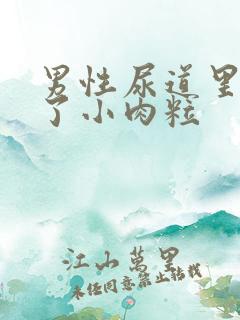 男性尿道里
了小肉粒
江山萬里
未经同意禁止搭载